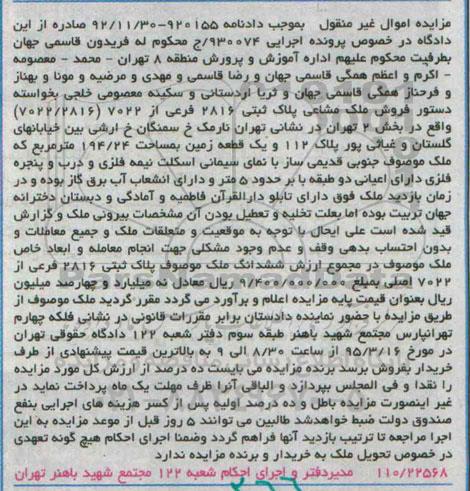 مزایده اموال غیر منقول  بموجب دادنامه ۹۲۰۱۵۵-۹۲/۱۱/۳۰ صادره از این
دادگاه در خصوص پرونده اجرایی ۹۳۰۰۷۴/ج محکوم له فریدون قاسمی جهان
بطرفیت محکوم علیهم اداره آموزش و پرورش منطقه ۸ تهران - محمد - معصومه
- اکرم و اعظم همگی قاسمی جهان و رضا قاسمی و مهدی و مرضیه و مونا و بهناز
و فرحناز همگی قاسمی جهان و ثریا اردستانی و سکینه معصومی خلجی بخواسته
دستور فروش ملک مشاعی پلاک ثبتی ۲۸۱۶ فرعی از ۷۰۲۲ (۷۰۲۲/۲۸۱۶)
واقع در بخش ۲ تهران در نشانی تهران نارمک خ سمنگان خ ارشی بین خیابانهای
گلستان و غیاثی پور پلاک ۱۱۲ و یک قطعه زمین بمساحت ۱۹۴/۲۴ مترمربع که
ملک موصوف جنوبی قدیمی ساز با نمای سیمانی اسکلت نیمه فلزی و درب و پنجره
فلزی دارای اعیانی دو طبقه با بر حدود ۵ متر و دارای انشعاب آب برق گاز بوده و در
زمان بازدید ملک فوق دارای تابلو دارالقرآن فاطمیه و آمادگی و دبستان دخترانه
جهان تربیت بوده اما بعلت تخلیه و تعطیل بودن آن مشخصات بیرونی ملک و گزارش
قید شده است علی ایحال با توجه به موقعیت و متعلقات ملک و جمیع معاملات و
بدون احتساب بدهی وقف و عدم وجود مشکلی جهت انجام معامله و ابعاد خاص
ملک موصوف در مجموع ارزش ششدانگ ملک موصوف پلاک ثبتی ۲۸۱۶ فرعی از
۷۰۲۲ اصلی بمبلغ ۹/۴۰۰/۰۰۰/۰۰۰ ریال معادل نه میلیارد و چهارصد میلیون
ریال بعنوان قیمت پایه مزایده اعلام و برآورد می گردد مقرر گردید ملک موصوف از
طریق مزایده با حضور نماینده دادستان برابر مقررات قانونی در نشانی فلکه چهارم
تهرانپارس مجتمع شهید باهنر طبقه سوم دفتر شعبه ۱۲۲ دادگاه حقوقی تهران
در مورخ ۹۵/۳/۱۶ از ساعت ۸/۳۰ الی ۹ به بالاترین قیمت پیشنهادی از طرف
خریدار بفروش برسد برنده مزایده می بایست ده درصد از ارزش کل مورد مزایده
را نقدا و فی المجلس بپردازد و الباقی آنرا ظرف مهلت یک ماه پرداخت نماید در
غیر اینصورت مزایده باطل و ده درصد اولیه پس از کسر هزینه های اجرایی بنفع
صندوق دولت ضبط خواهدشد طالبین می توانند ۵ روز قبل از موعد مزایده به این
اجرا مراجعه تا ترتیب بازدید آنها فراهم گردد وضمنا اجرای احکام هیچ گونه تعهدی
در خصوص تحویل ملک به خریدار و برنده مزایده ندارد
۱۱۰/۲۲۵۶۸  مدیردفتر و اجرای احکام شعبه ۱۲۲ مجتمع شهید باهنر تهران